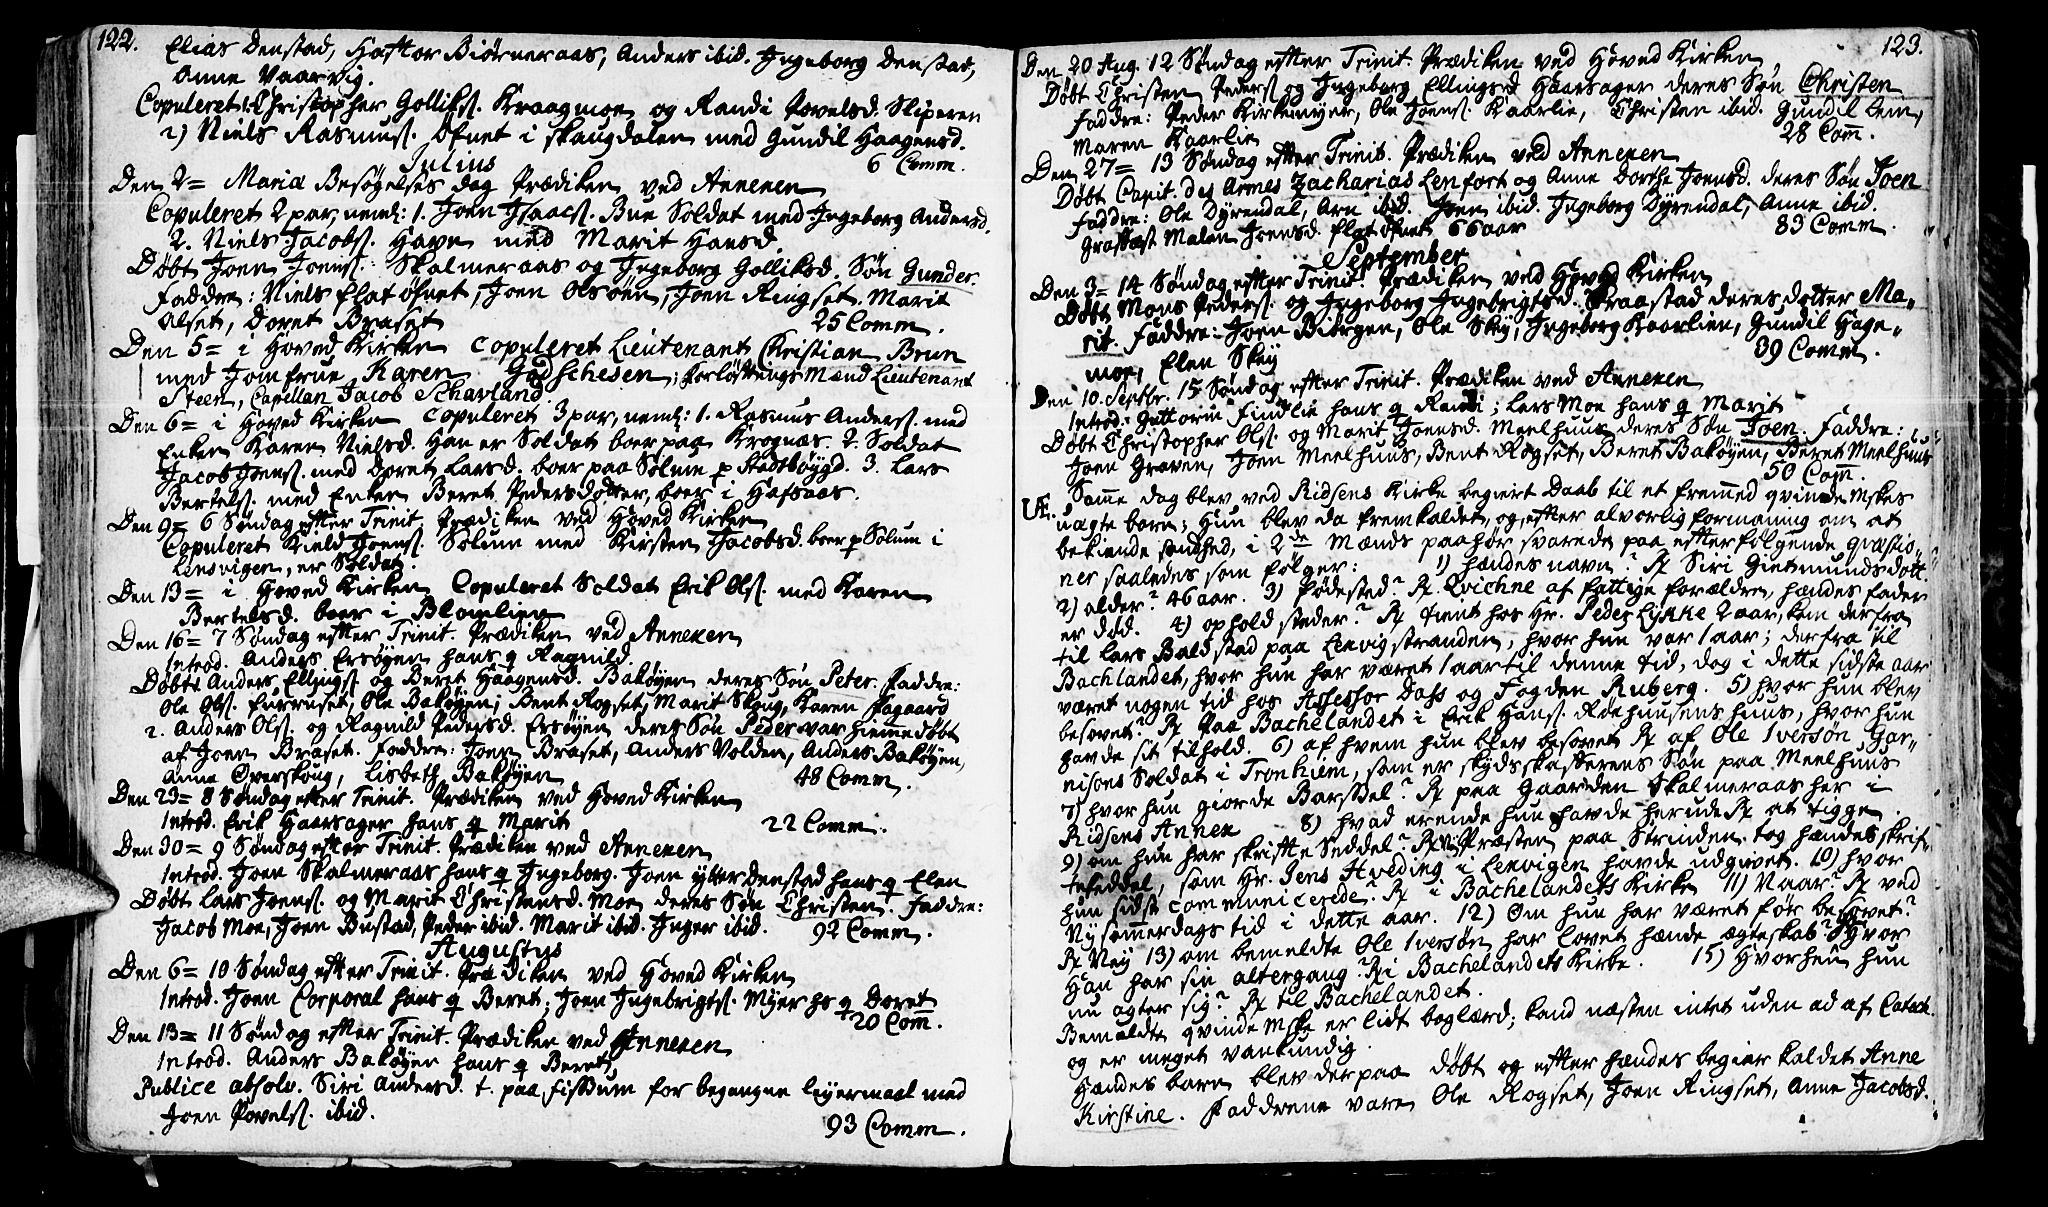 122.
Elias Denstad, Hafftor Biørneraas, Anders ibid. Ingeborg Denstad,
Anne Vaarvig.
Copuleret 1. Christopher Golliks. Kraagmoe og Randi Povelsd. Sliperen
2) Niels Rasmuss. Øfnet i Skaugdalen med Gundil Haagensd.
6 Comm.
Julius
Den 2= Mariæ Besøgelses dag Prædiken ved Annexen
Copuleret 2 par, neml: 1. Joen Isaacs. Bue Soldat med Ingeborg Andersd.
2. Niels Jacobs. Havn med Marit Hansd.
Døbt Joen Joens. Skalmeraas og Ingeborg Golliksd. Søn Gunder.
Faddre: Niels flat Øfnet, Joen Olsøen, Joen Ringset. Marit
Alset, Doret Braset 25 Comm.
Den 5= i Hoved Kirken Copuleret Lieutenant Christian Brun
med Jomfrue Karen Godschesen; forløftnings Mænd Lieutenant
Steen, Capellan Jacob Scharland.
Den 6= i Hoved Kirken Copuleret 3 par, neml: 1. Rasmus Anders. med
Enken Karen Nielsd. Han er Soldat boer paa Krognæs. 2. Soldat
Jacob Joens. med Doret Larsd. boer paa Solum p Stadsbøygd. 3. Lars
Bertels. med Enken Beret Pedersdotter, boer i Hafsaas.
Den 9= 6 Søndag efter Trinit. Prædiken ved Hoved Kirken
Copuleret Kield Joens. Solum med Kirsten Jacobsd. boer p Solum i
Lensvigen, er Soldat.
Den 13= i Hoved Kirken Copuleret Soldat Erik Ols. med Karen
Bertelsd. boer i Blomlien
Den 16= 7 Søndag efter Trinit. Prædiken ved Annexen
Introd. Anders Ersøyen hans q Ragnild.
Døbt Anders Ellings. og Beret Haagensd. Bakøyen deres Søn Peter. Faddre:
Ole Ols. Furruset, Ole Bakøyen, Bent Rogset, Marit Skaug, Karen Fagaard
2. Anders Ols. og Ragnild Pedersd. Ersøyen deres Søn Peder var hiemme døbt
af Joen Braset. Faddre: Joen Braset, Anders Volden, Anders Bakøyen,
Anne Overskoug, Lisbeth Bakøyen 48 Comm.
Den 23= 8 Søndag efter Trinit. Prædiken ved Hoved Kirken
Introd. Erik Haarsager hans q Marit 22 Comm.
Den 30= 9 Søndag efter Trinit. Prædiken ved Annexen
Introd. Joen Skalmeraas hans q Ingeborg. Joen ytter Denstad hans q Elen
Døbt Lars Joens. og Marit Christensd. Moe deres Søn Christen. Faddre:
Jacob Moe, Joen Bustad, Peder ibid. Marit ibid. Inger ibid. 92 Comm.
Augustus
Den 6= 10 Søndag efter Trinit. Prædiken ved Hoved Kirken
Introd. Joen Corporal hans q Beret; Joen Ingebrigts. Myer hs q Doret
20 Com.
Den 13= 11 Søndag efter Trinit. Prædiken ved Annexen
Introd. Anders Bakøyen hans q Beret,
Publice absolv. Siri Andersd. t. paa Fissum for begangne leyermaal med
Joen Povels. ibid. 93 Comm.
123.
Den 20 Aug. 12 Søndag efter Trinit. Prædiken ved Hoved Kirken,
Døbt Christen Peders. og Ingeborg Ellingsd. Haarsager deres Søn Christen
Faddre: Peder Kirkemyer, Ole Joens. Kaarlie, Christen ibid. Gundil Lem,
Maren Kaarlie 28 Com.
Den 27= 13 Søndag efter Trinit. Prædiken ved Annexen
Døbt Capit. des Armes Zacharias Lenfort og Anne Dorthe Joensd. deres Søn Joen
Faddre: Ole Dyrendal, Arn ibid. Joen ibid. Ingeborg Dyrendal, Anne ibid.
Grafæst Malen Joensd. flat Øfnet 66 aar 83 Comm.
September
Den 3= 14 Søndag efter Trinit. Prædiken ved Hoved Kirken
Døbt Mons Peders. og Ingeborg Ingebrigtsd. Praastad deres dotter Ma-
rit. Faddre: Joen Biørgen, Ole Skey, Ingeborg Kaarlien, Gundil Hage-
moe, Elen Skey 39 Comm.
Den 10. Septbr. 15 Søndag efter Trinit. Prædiken ved Annexen
Introd. Guttorm Findlie hans q Randi; Lars Moe hans q Marit
Døbt Christopher Ols. og Marit Joensd. Meelhuus deres Søn Joen. Faddre:
Joen Graven, Joen Meelhuus, Bent Rogset, Beret Bakøyen, Beret Meelhuus
50 Com.
Samme dag blev ved Ridsens Kirke begiert Daab til et fremmed qvinde Mskes
uægte barn; Hun blev da fremkaldet, og efter alvorlig formaning om at
bekiende sandhed, i 2de Mænds paahør svarede paa efterfølgende qvæstio-
ner saaledes som følger: 1) hændes navn? R Siri Gietmundsdott.
2) alder? 46 aar. 3) Fødested? R. Qvichne af fattige forældre, hændes fader
er død. 4) ophold steder? R tient hos Hr. Peder Lykke 2 aar, kom derfra
til Lars Baldstad paa Lexvigstranden, hvor hun var 1 aar; derfra til
Bachlandet, hvor hun har været 1 aar til denne tid, dog i dette sidste aar
været nogen tid hos Assessor Dass og Fogden Ruberg. 5) hvor hun blev
besovet? R Paa Bachelandet i Erik Hans. Roehuusens huus, hvor hun
havde sit tilhold. 6) af hvem hun blev besovet R af Ole Iversøn Gar-
nisons Soldat i Tronhiem, som er skydsskafferens Søn paa Meelhuus
7) hvor hun giorde Barssel? R paa Gaarden Skalmeraas her i
Ridsens Annex 8) hvad erende hun havde herude R at tigge
9) om hun har skrifte Seddel? R Præsten paa Strinden tog hændes skrif-
teseddel, som Hr. Jens Hveding i Lexvigen havde udgivet. 10) hvor
hun sidst communicerede? R i Bachelandets Kirke 11) Naar? R ved
Nysommerdags tid i dette aar. 12) Om hun har været før besovet?
R Ney 13) om bemeldte Ole Iversøn har lovet hænde ægteskab? Hvor
Han har sin altergang? R i Bachelandets Kirke. 15) Hvorhen hun
nu agter sig? R til Bachelandet.
Bemeldte qvinde Mske er lidt boglærd; kand næsten intet uden ad af Catech.
og er meget vankundig
Hændes barn blev derpaa døbt og efter hændes begier kaldet Anne
Kirstine. Faddrene vare Ole Rogset, Joen Ringset, Anne Jacobsd.